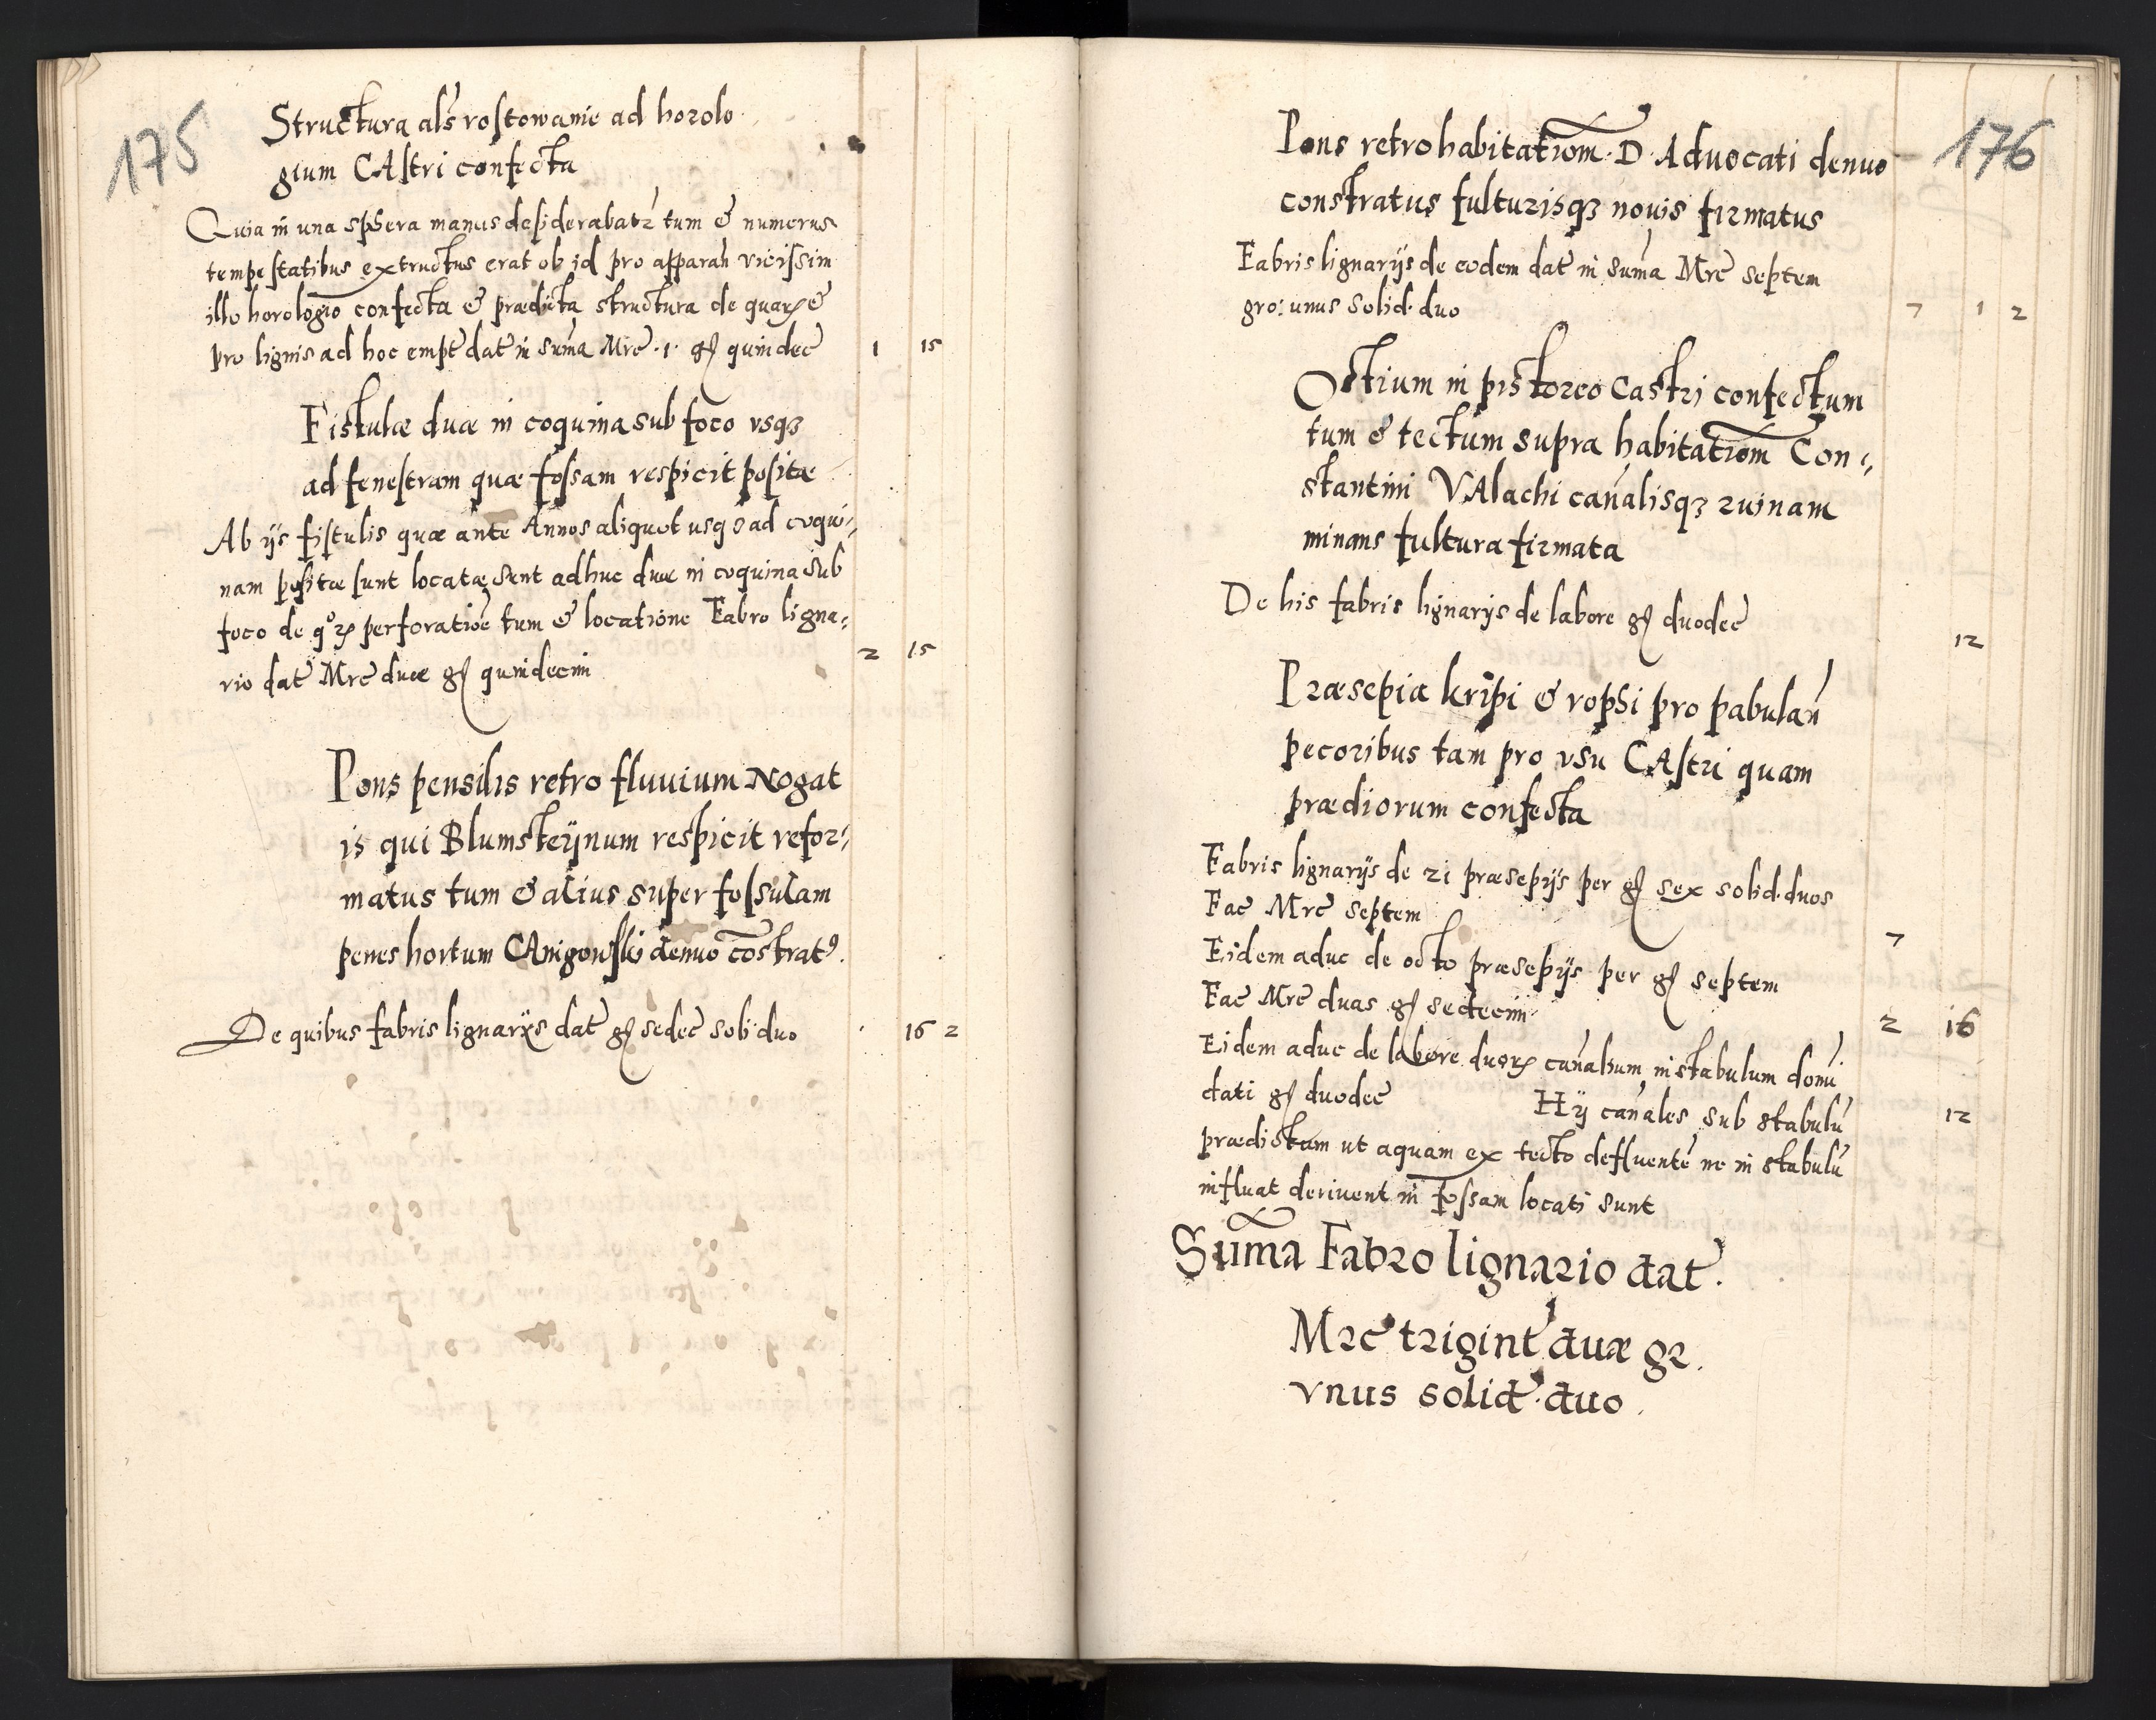 175
Structura als rostowanie ad horolo
gium CAstri confecta
Quia in una sphera manus desiderabatr tum & numerus
tempestatibus extructus erat ob id pro apparan vicissim
illo horologio confecta & prædicta structura de quarum &
pro lignis ad hoc empt dat in suma Mrc · 1 · gr quindec 1 15
Fistulæ duæ in coquina sub foco vsq3
ad fenestram quæ fossam respicit positæ
Ab ijs fistulis quæ ante Annos aliquot usq3 ad coqui=
nam positæ sunt locatæ sunt adhuc duæ in coquina sub
foco de qorum perforatioe tum & locatione Fabro ligna=
rio dat Mrc duæ gr quindecim 2 15
Pons pensilis retro fluuium Nogat
is qui Blumsteijnum respicit refor=
matus tum & alius super fossulam
penes hortum CAnigowski denuo costrat9.
De quibus fabris lignarijs dat gr sedec soli duo 16 2
176
Pons retro habitatiom D Aduocati denuo
constratus fulturisq3 nouis firmatus
Fabris lignarijs de eodem dat in suma Mrc septem
gro: unus solid· duo 7 1 2
Ostium in pistoreo Castri confectum
tum & tectum supra habitatiom Con=
stantini VAlachi canalisq3 ruinam
minans fultura firmata
De his fabris lignarijs de labore gr duodec 12
Præsepia kripi & rophi pro pabulan
pecoribus tam pro vsu CAstri quam
prædiorum confecta
Fabris lignarijs de 21 præsepijs per gr sex solid· duos
Fac Mrc septem 7
Eidem aduc de octo præsepijs per gr septem
Fac Mrc duas gr sedecim 2 16
Eidem aduc de labore duorum canalium in stabulum domi
dati gr duodec Hij canales sub stabulu 12
prædictum ut aquam ex tecto defluente ne in stabulu
influat deriuent in fossam locati sunt
Suma Fabro lignario dat.
Mrc trigint duæ gr.
vnus solid· duo.